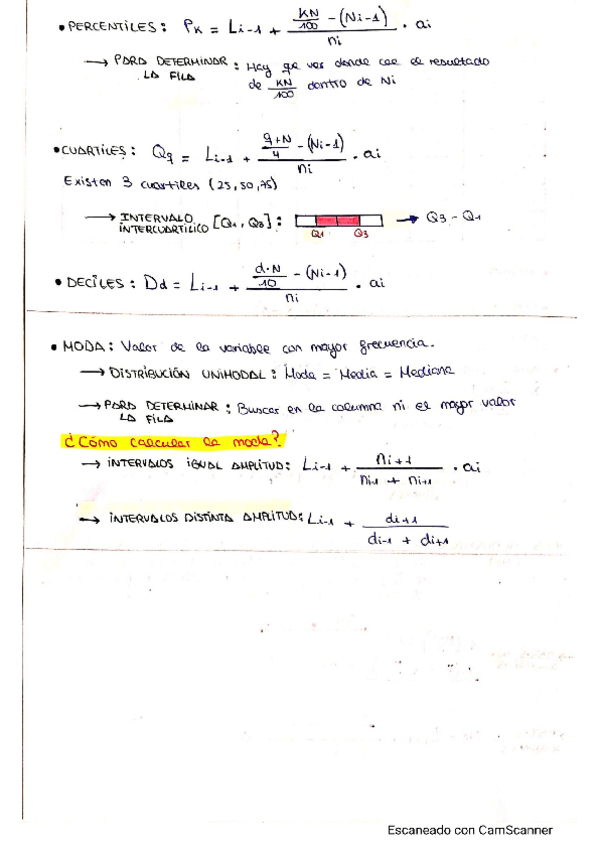 • PERCENTILES: Pk = Li-1 + (KN/100 - (Ni-1))/ni . ai
→ PARA DETERMINAR LA FILA : Hay que ver donde cae el resultado
de KN/100 dentro de Ni
• CUARTILES: Qq = Li-1 + (q+N/4 - (Ni-1))/ni . ai
Existen 3 cuartiles (25, 50, 75)
→ INTERVALO INTERCUARTILICO [Q1, Q3] : Q1 Q3 → Q3 - Q1
• DECILES: Dd = Li-1 + (d.N/10 - (Ni-1))/ni . ai
• MODA: Valor de la variable con mayor frecuencia.
→ DISTRIBUCIÓN UNIMODAL: Moda = Media = Mediana
→ PARA DETERMINAR LA FILA : Buscar en la columna ni el mayor valor
¿Cómo calcular la moda?
→ INTERVALOS IGUAL AMPLITUD: Li-1 + ni+1/(ni-1 + ni+1) . ai
→ INTERVALOS DISTINTA AMPLITUD: Li-1 + di+1/(di-1 + di+1)
Escaneado con CamScanner